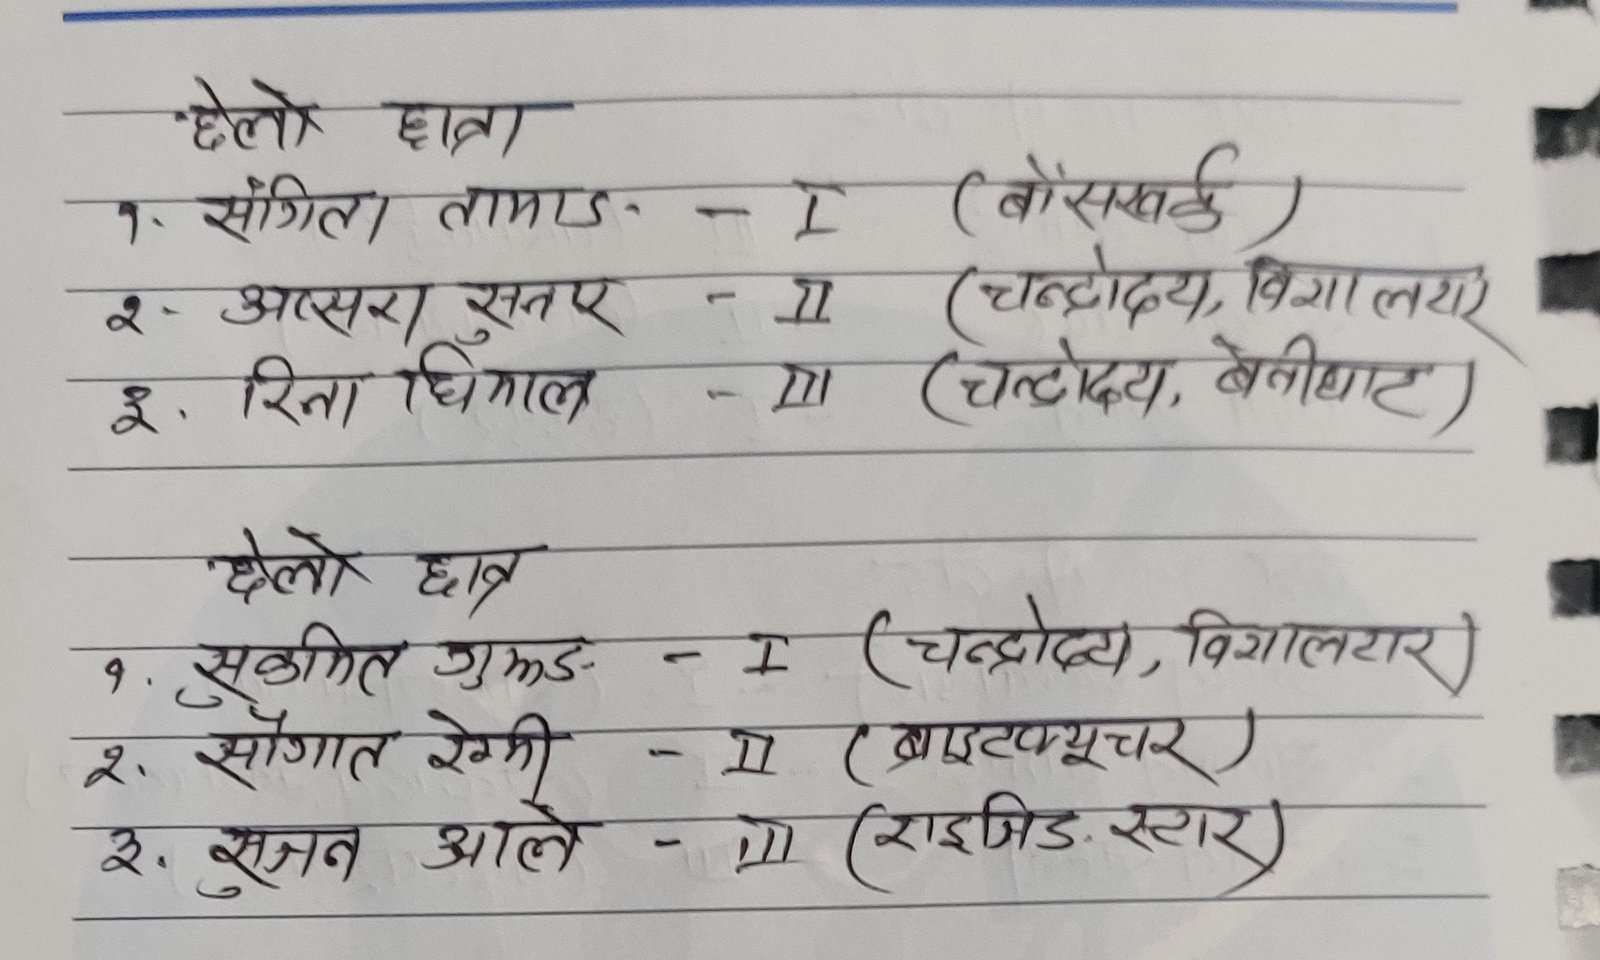 छेलो छात्रा
१. संगिता तामाङ - I (बाँसखर्क)
२. अप्सरा सुनार - II (चन्द्रोदय, विशालटार)
३. रिना घिमाल - III (चन्द्रोदय, बेनीघाट)
छेलो छात्र
१. सुकमित गुरुङ - I (चन्द्रोदय, विशालटार)
२. सौगात रेग्मी - II (ब्राइटफ्यूचर)
३. सुजन आले - III (राइजिङ स्टार)